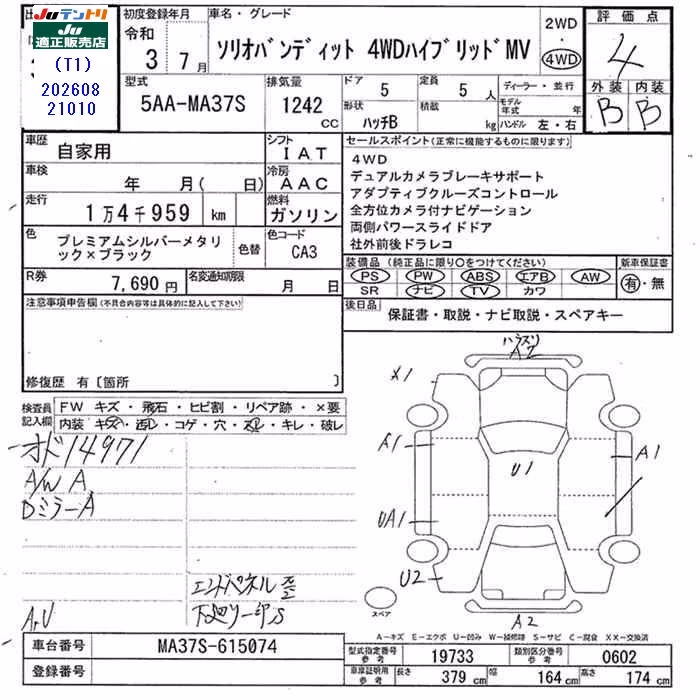 Juテントリ
Ju適正販売店
(T1)
202608
21010
初度登録年月
令和
3 7月
車名・グレード
ソリオバンディット 4WDハイブリッドMV
2WD
・
4WD
評価点
4
外装 内装
B B
型式
5AA-MA37S
排気量
1242 cc
ドア
5
定員
5 人
形状
ハッチB
積載
kg
ディーラー・並行
モデル年式 年
ハンドル 左・右
車歴
自家用
シフト
IAT
車検
年 月( 日)
冷房
AAC
走行
1万4千959 km
燃料
ガソリン
色
プレミアムシルバーメタリック×ブラック
色替
色コード
CA3
R券
7,690円
名変通知期限
月 日
セールスポイント(正常に機能するものに限ります)
4WD
デュアルカメラブレーキサポート
アダプティブクルーズコントロール
全方位カメラ付ナビゲーション
両側パワースライドドア
社外前後ドラレコ
装備品(純正品に限り○をつけてください)
PS PW ABS エアB AW
SR ナビ TV カワ
新車保証書
有・無
後日品
保証書・取説・ナビ取説・スペアキー
注意事項申告欄(不具合内容等は具体的に記入して下さい)
修復歴 有〔箇所 〕
検査員記入欄
FW キズ・飛石・ヒビ割・リペア跡・×要
内装 キズ・汚レ・コゲ・穴・ズレ・キレ・破レ
オド14971
A/W A
Dミラー A
エンドパネル
下廻り一部S
A,U
X1
A1
UA1
U2
U1
A1
A2
スペア
A-キズ E-エクボ U-凹み W-補修跡 S-サビ C-腐食 XX-交換済
車台番号
MA37S-615074
登録番号
型式指定番号 参考
19733
類別区分番号 参考
0602
車庫証明用 参考
長さ 379 cm 幅 164 cm 高さ 174 cm